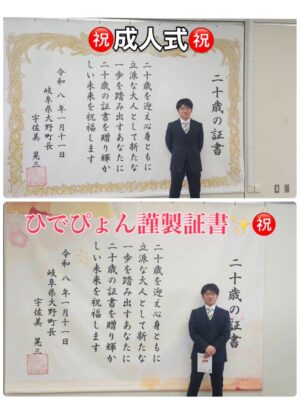 ㊗️成人式㊗️
二十歳の証書
二十歳を迎え心身ともに
立派な大人として新たな
一歩を踏み出すあなたに
二十歳の証書を贈り輝か
しい未来を祝福します
令和八年一月十一日
岐阜県大野町長
宇佐美晃三
ひでぴょん謹製証書✨㊗️
二十歳の証書
二十歳を迎え心身ともに
立派な大人として新たな
一歩を踏み出すあなたに
二十歳の証書を贈り輝か
しい未来を祝福します
令和八年一月十一日
岐阜県大野町長
宇佐美晃三